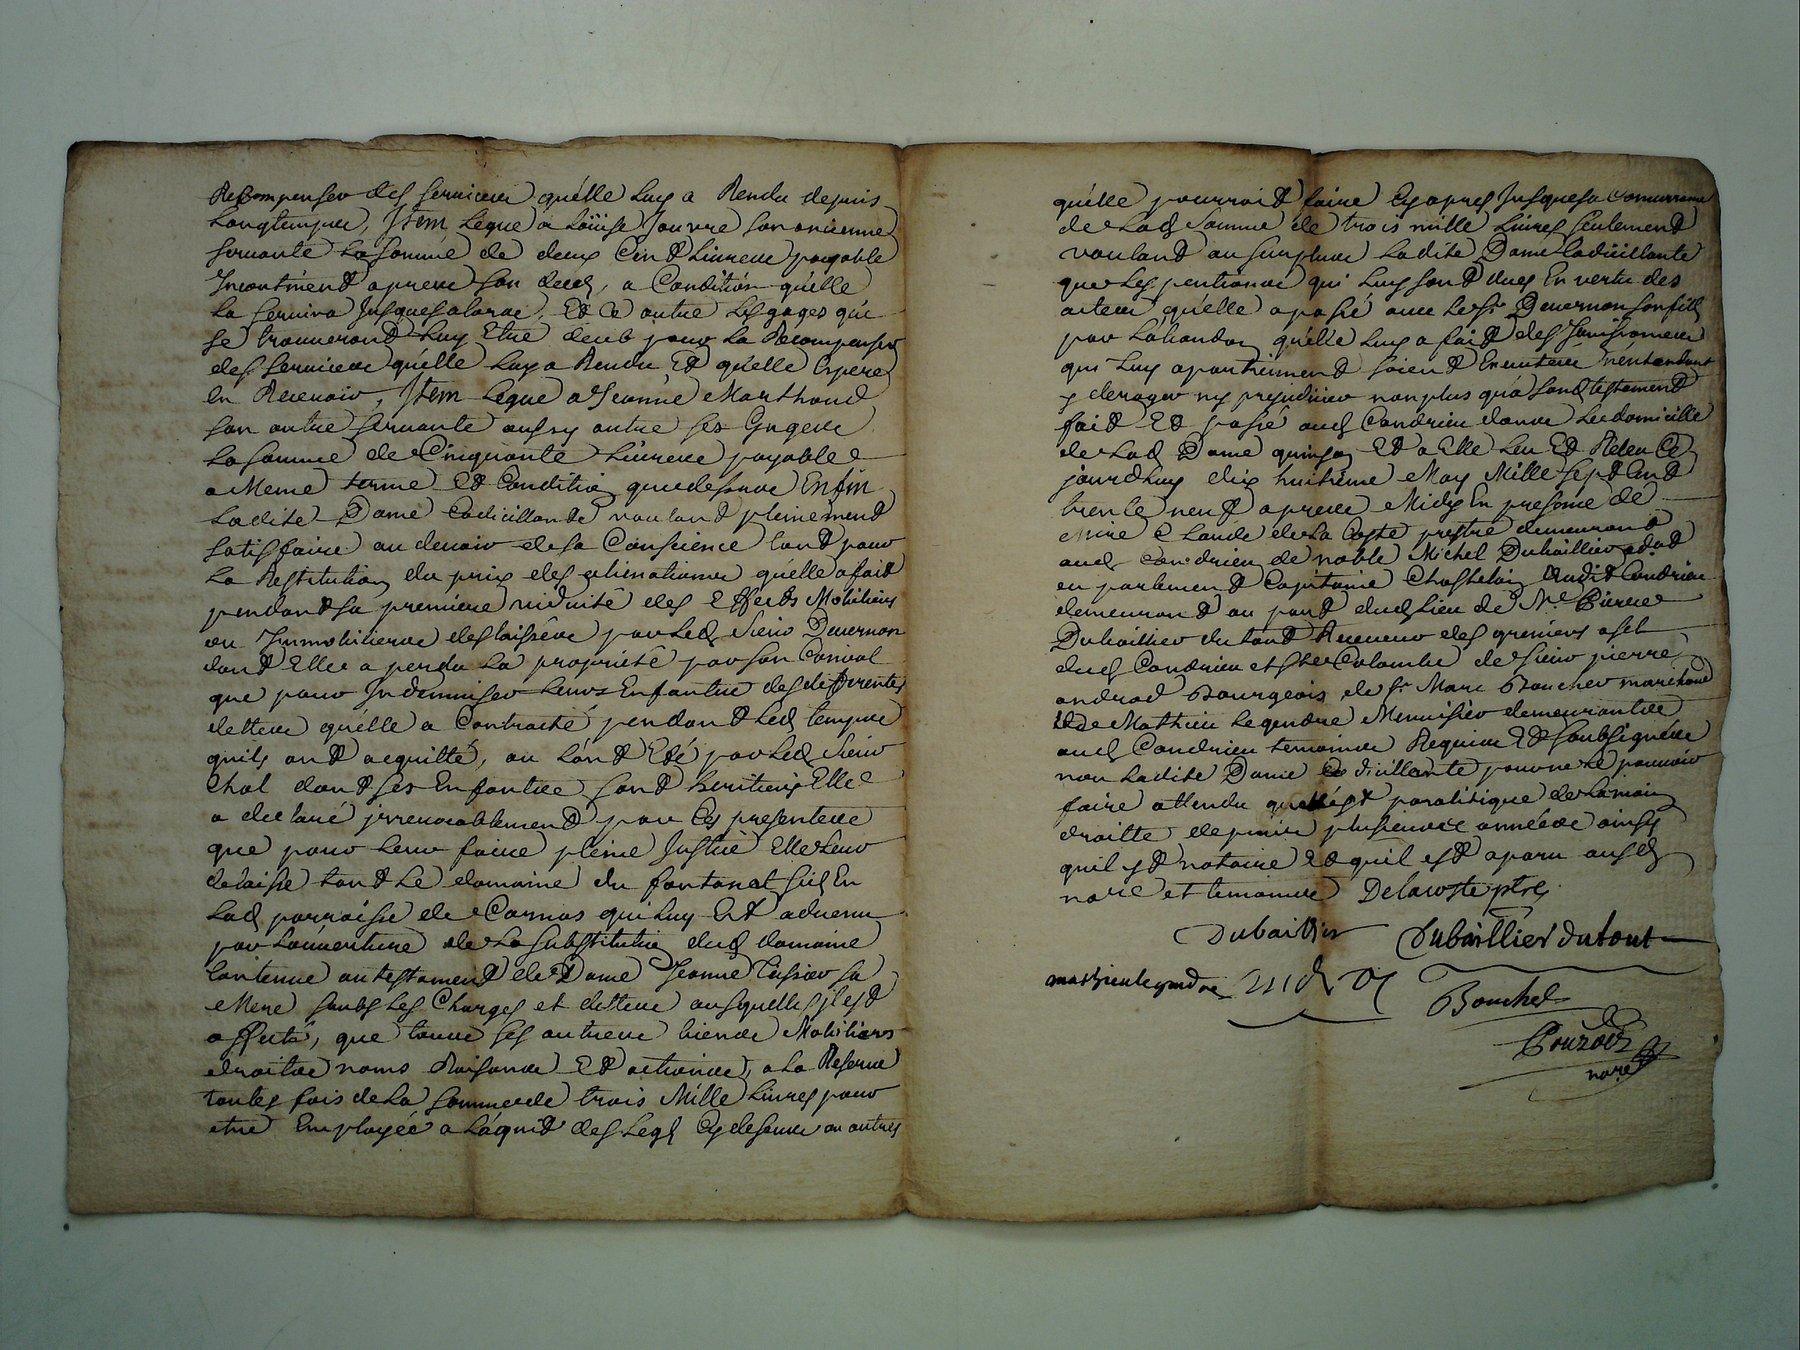 Recompenser des services quélle luy a Rendu depuis
Longtempue, Jtem Legue a Loüise Jouvre son ancienne
servante La somme de deux Cent Livres payable
Jncontinent apres son decez, a Condition quélle
La servira Jusques alorse, Et Ce outre Les gages qui
se trouveront Luy Etre deub pour La Recompenser
des services quélle Luy a Rendu Et quélle Espere
En Recevoir, Jtem Legue a Jeanne Marthoud
son autre servante aussy outre ses Gages
La somme de Cinquante Livres payable
a Meme terme Et Condition que dessus Enfin
Ladite Dame Codicillante voulant pleinement
satisfaire au devoir de sa Conscience tant pour
La Restitution du prix des alienations quélle a fait
pendant sa premiere viduité des Effects Mobiliers
ou Jmmobiliers deslaissés par Led Sieur Duvernon
dont Elle a perdu La proprieté par son Convol
que pour Jndemniser Leurs Enfants des differentes
dettes quélle a Contracté pendant Led temps
quils ont acquitté, ou L'ont Eté par Led Sieur
Chol dont ses Enfants sont heritiers Elle
a declaré jrrevocablement par Ces presentes
que pour Leur faire pleine Justice Elle Leur
delaisse tant Le domaine du fontanat sis En
Lad parroisse de Carnas qui Luy Est advenu
par Louverture de La Substitution dud domaine
Contenue au testament de Dame Jeanne Tissier sa
Mere soubs Les Charges et dettes ausquelles jl est
affecté, que tous ses autres biens Mobiliers
droits noms Raisons Et actions, a La Reserve
toutes fois de La somme de trois Mille Livres pour
etre Employée a Láquit des Legs Cy dessus ou autres
quélle pourroit faire Cy apres Jusques a Concurrance
de Lad Somme de trois mille Livres seulement
voulant au surplus Ladite Dame Codicillante
que Les pentions qui Luy sont dues En vertu des
actes quélle a passé avec Le Sr Duvernon son fils
par Labandon quélle Luy a fait des Jouissances
qui Luy apartiennent soient Executés néntendant
y deroger ny prejudicier non plus quá son testament
fait Et passé aud Condrieu dans Le domicille
de Lad Dame quinson Et a Elle Leu Et Releu Ce
jourdhuy dix huitieme May Mille sept Cent
trente neuf apres Midy En presence de
Mire Claude de La Coste prestre demeurant
aud Condrieu de noble Michel Dubaillier adat
en parlement Capitaine Chastelain dudit Condrieu
demeurant au port dud Lieu de Me Pierre
Dubaillier du tout Receveur des greniers a sel
dud Condrieu et Ste Colombe de sieur pierre
andrad Bourgeois de Sr Marc Boucher marchand
Et de Mathieu Legendre Menuisier demeurantes
aud Condrieu temoins Requis Et soubsignés
non Ladite Dame Codicillante pour ne Le pouvoir
faire attendu quellest paralitique de La main
droitte depuis plusieurs années ainsy
quil est notoire Et quil est aparu ausd
nore et temoins Delacoste ptre
Dubaillier Dubaillier dutout
mathieu legendre
Bouchet
nore